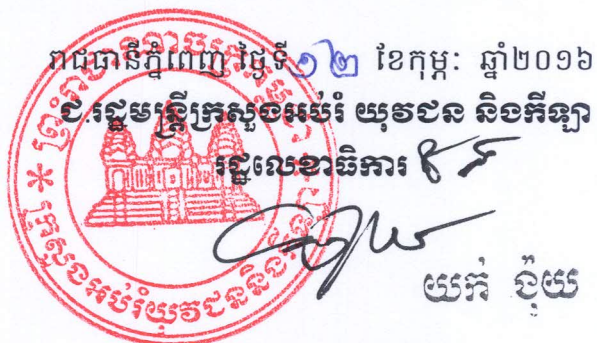 រាជធានីភ្នំពេញ ថ្ងៃទី១២ ខែកុម្ភៈ ឆ្នាំ២០១៦
ជ.រដ្ឋមន្ត្រីក្រសួងអប់រំ យុវជន និងកីឡា
រដ្ឋលេខាធិការ
យក់ ង៉ុយ
ក្រសួងអប់រំយុវជននិងកីឡា